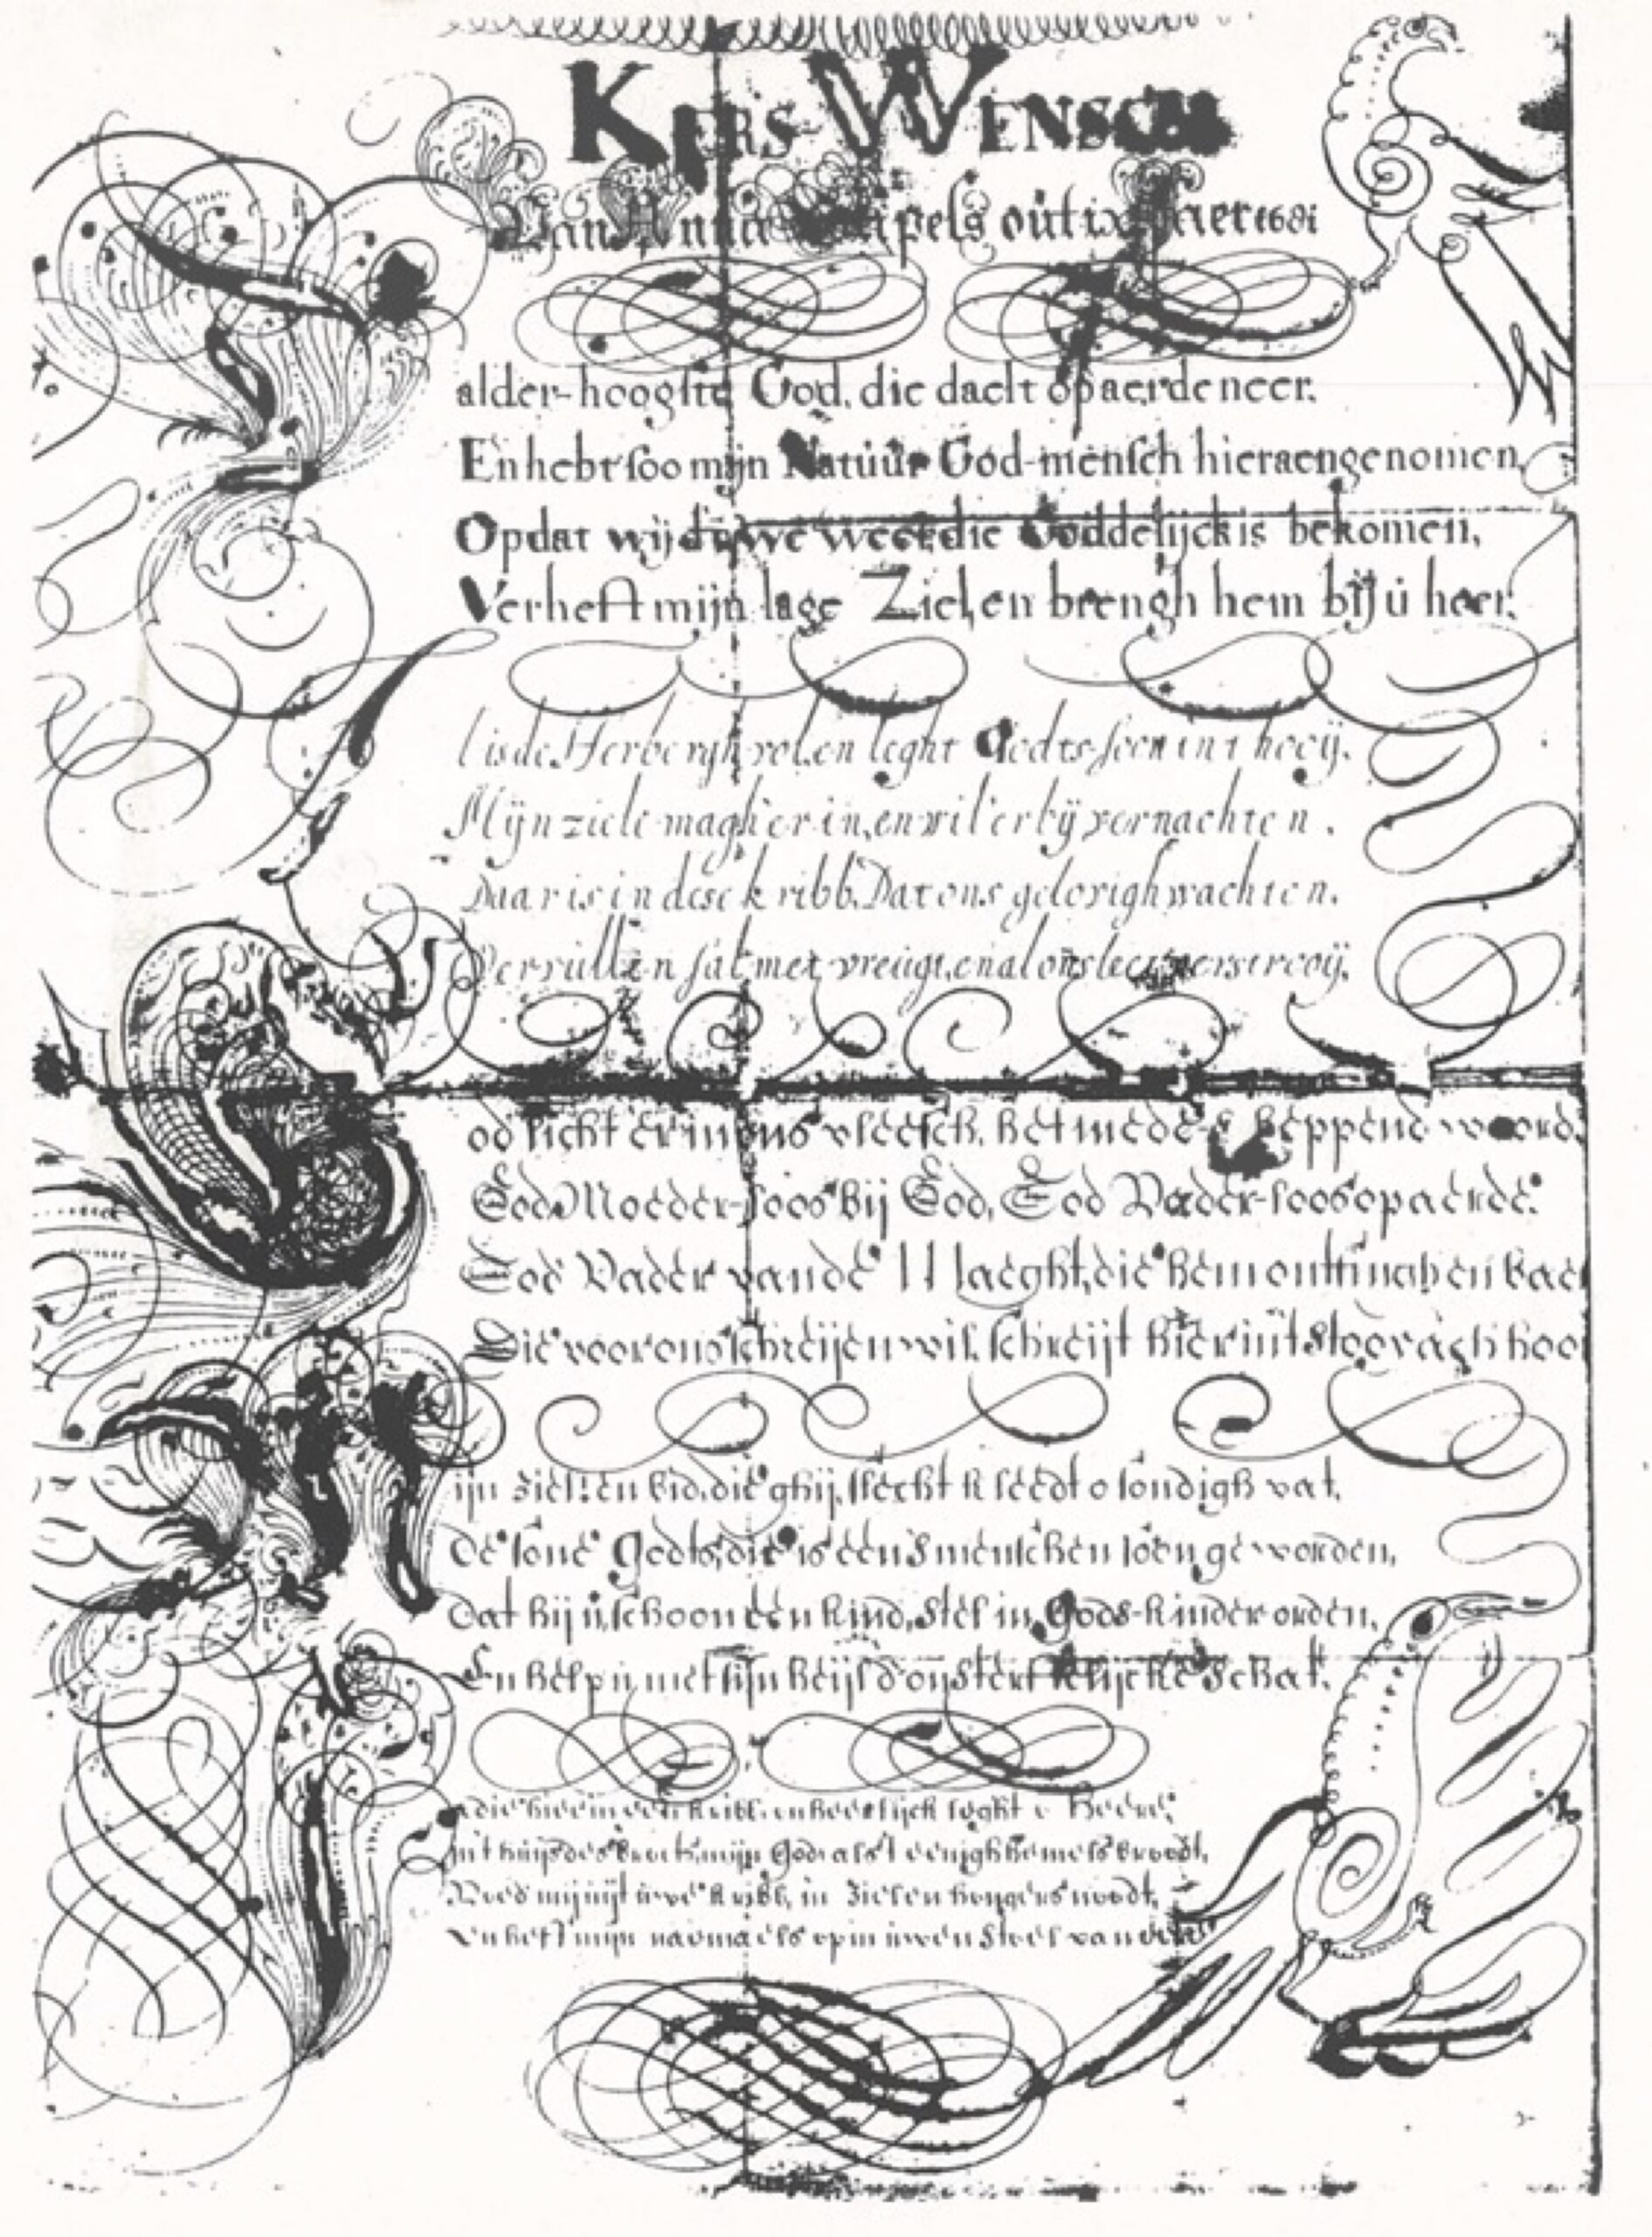 Kers-Wensch
Van Anna pels oût ix Jaer 1681
alder-hoogste God, die daelt op aerde neer.
En hebt soo mijn Natuur God-mensch hier aengenomen,
Op dat wij die Goddelijck is bekomen,
Verheft mijn lage Ziel, en brengh hem bij û heer:
is de Herbergh vol, en leght Godts-soon in 't hooij.
Mijn ziele magh'er in, en wil'er bij vernachten.
Daar is in dese kribb, Dat ons gelovigh wachten.
Vervullen sal met vreugt, en al ons verstrooij.
od licht er in ons vleesch, het mede-scheppend woord.
God, Moeder-loos bij God, God Vader-loos op aerde:
God Vader van de Maeght, die hem ontfingh en bae
Die voor ons schreijen wil, schreijt hier in't
ijn ziel! en bid, die ghij, slecht kleedt o sondigh vat,
De sone Godts, die is eens menschen soon geworden,
Dat hij u, schoon een kind, stel in Gods-kinder orden,
En help u met sijn heijl d'onsterffelijcke Schat.
die hier in een kribb, en heerlijck leght o Heere,
in't huijs des broots, mijn God, als 't eenigh hemels broodt,
Voed mij uijt uwe kribb, in zielen hongers noodt,
En heft mijn naemaels op in uwen Stoel van eere